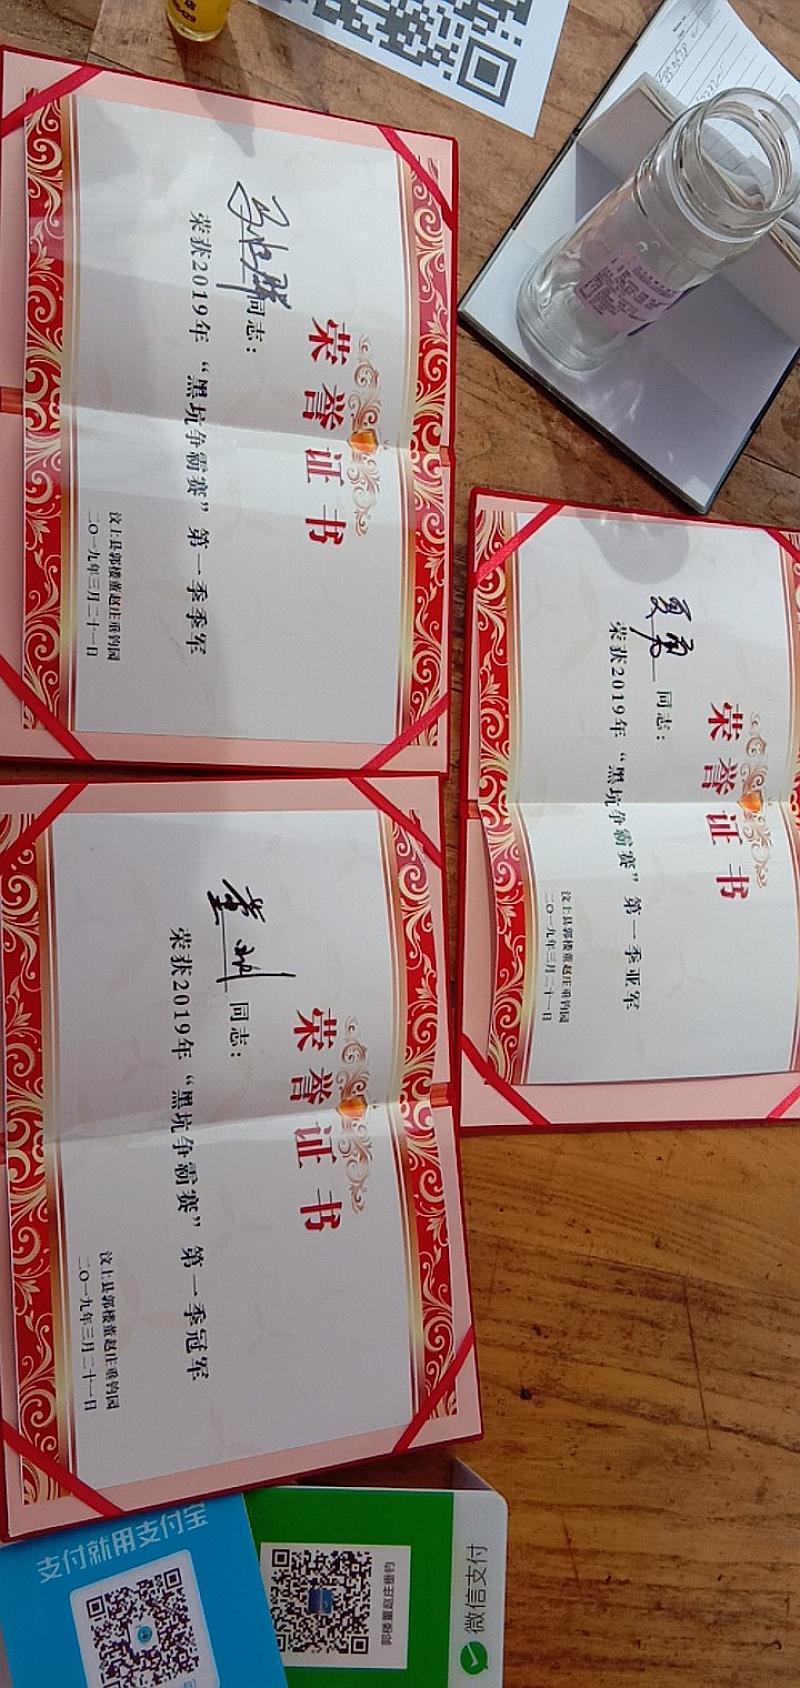 荣誉证书
同志：
荣获2019年“黑坑争霸赛”第一季季军
汶上县郭楼董赵庄垂钓园
二〇一九年三月二十一日
荣誉证书
夏勇
同志：
荣获2019年“黑坑争霸赛”第一季亚军
汶上县郭楼董赵庄垂钓园
二〇一九年三月二十一日
荣誉证书
董
同志：
荣获2019年“黑坑争霸赛”第一季冠军
汶上县郭楼董赵庄垂钓园
二〇一九年三月二十一日
支付就用支付宝
微信支付
郭楼董赵庄垂钓